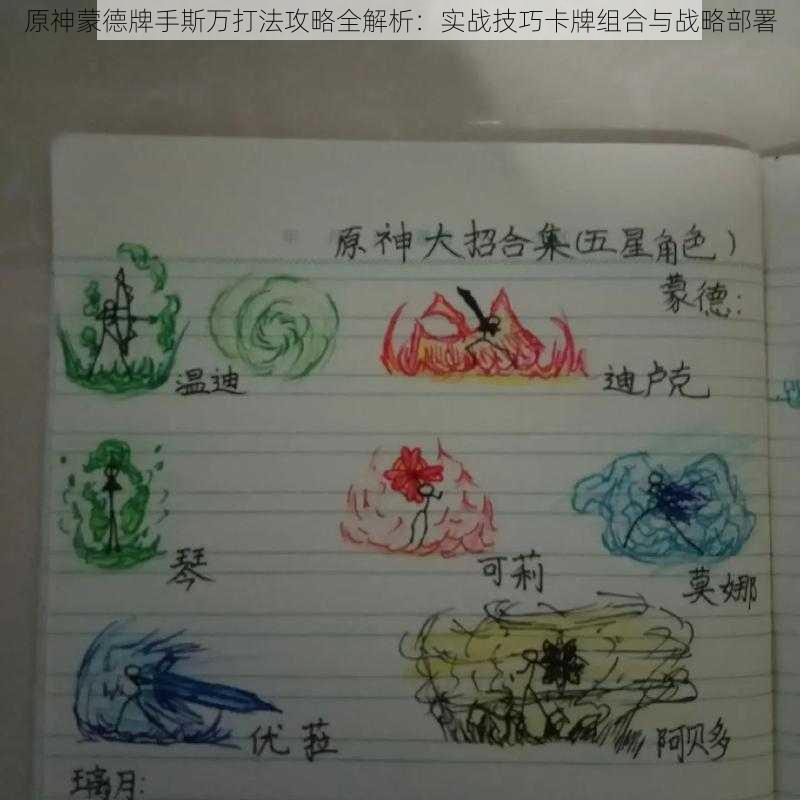 原神蒙德牌手斯万打法攻略全解析：实战技巧卡牌组合与战略部署
原神大招合集(五星角色)
蒙德:
温迪
迪卢克
琴
可莉
莫娜
优菈
阿贝多
璃月: